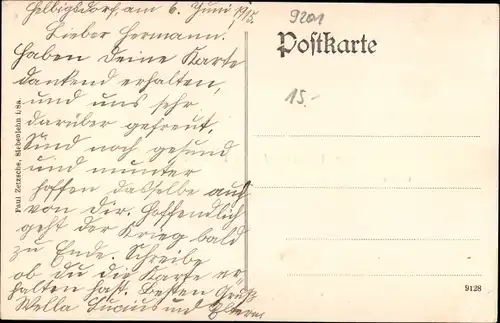 Helbigsdorf, am 6. Juni 1915.
Lieber Hermann.
Haben Deine Karte
dankend erhalten,
und uns sehr
darüber gefreut,
Sind noch gesund
und munter
hoffen dasselbe auch
von Dir. Hoffendlich
geht der Krieg bald
zu Ende. Schreibe
ob du die Karte er-
halten hast. Besten Gruß
Wella und Eltern
9201
Postkarte
15.-
Paul Zetzsche, Siebenlehn i. Sa.
9128